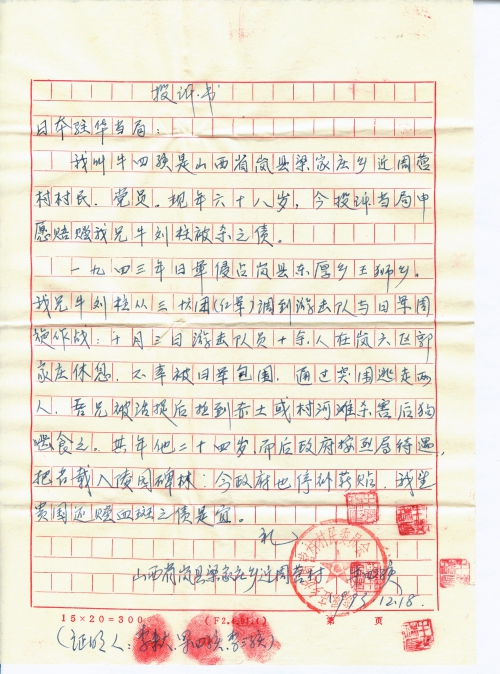 投诉书
日本驻华当局：
我叫牛四孩是山西省岚县梁家庄乡近周营
村村民、党员。现年六十八岁，今投诉当局申
愿赔赔我兄牛刘柱被杀之债。
一九四三年日军侵占岚县东厚乡王狮乡。
我兄牛刘柱从三坊团(红军)调到游击队与日军周
旋作战：十月三日游击队员十余人在岚六区郭
家庄休息，不幸被日军包围，通过突围逃走两
人，吾兄被活捉后拉到赤土或村河滩杀害后狗
喂食之。其年他二十四岁而后政府按烈局待遇，
把名载入陵园碑林：今政府也停补薪贴，我望
贵国还赔血斑之债是宜。
礼
山西省岚县梁家庄乡近周营村 牛四孩
1993.12.18.
15×20=300
第 页
(证明人：李 梁四孩 李二孩)